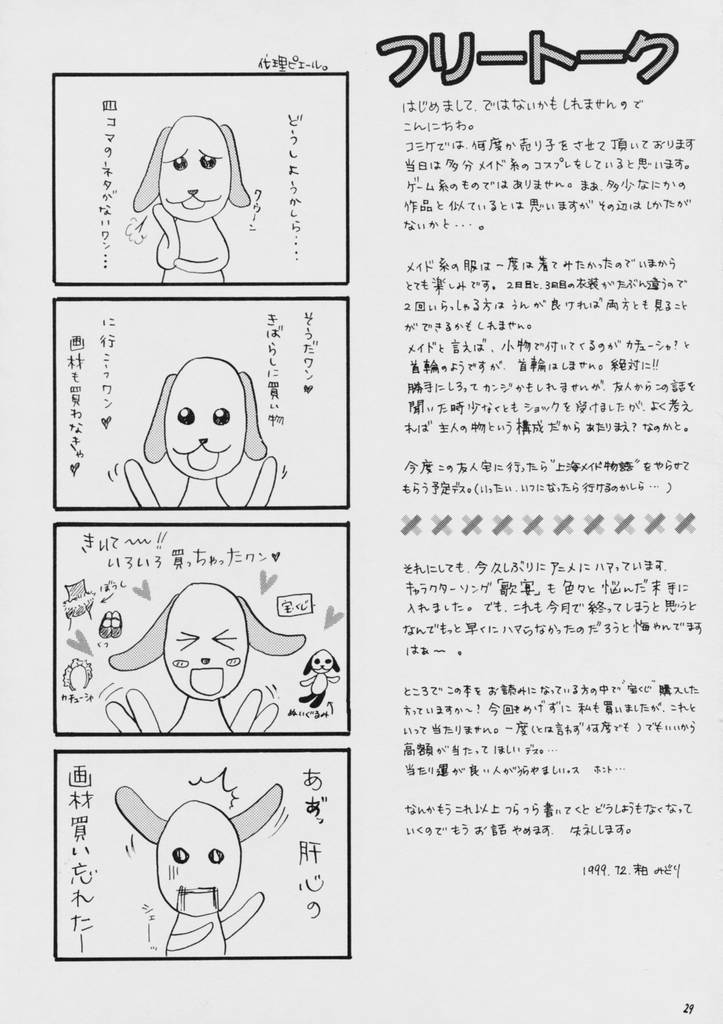 フリートーク
はじめまして、ではないかもしれませんので
こんにちわ。
コミケでは、何度か売り子をさせて頂いております
当日は多分メイド系のコスプレをしていると思います。
ゲーム系のものではありません。まぁ、多少なにかの
作品と似ているとは思いますがその辺はしかたが
ないかと…。
メイド系の服は一度は着てみたかったのでいまから
とても楽しみです。2日目と、3日目の衣装がたぶん違うので
2回いらっしゃる方はうんが良ければ両方とも見ること
ができるかもしれません。
メイドと言えば、小物で付いてくるのがカチューシャ?と
首輪のようですが、首輪はしません。絶対に!!
勝手にしろってカンジかもしれませんが、友人からこの話を
聞いた時少なくともショックを受けましたが、よく考え
れば主人の物という構成だからあたりまえ?なのかと。
今度この友人宅に行ったら"上海メイド物語"をやらせて
もらう予定デス。(いったい、いつになったら行けるのかしら…)
それにしても、今久しぶりにアニメにハマっています。
キャラクターソング「歌宴」も色々と悩んだ末手に
入れました。でも、これも今月で終ってしまうと思うと
なんでもっと早くにハマらなかったのだろうと悔やんでます
はぁ〜。
ところでこの本をお読みになっている方の中で"宝くじ"購入した
方っていますか〜?今回もめげずに私も買いましたが、これと
いって当たりません。一度(とは言わず何度でも)でもいいから
高額が当たってほしいデス…
当たり運が良い人がうらやましいっス ホント…
なんかもうこれ以上つらつら書いてくとどうしようもなくなって
いくのでもうお話やめます。失礼します。
1999.12.柏みどり
代理ピエール。
どうしようかしら・・・
クゥーン
四コマのネタがないワン・・・
そうだワン♥
きばらしに買い物
に行こーっワン♥
画材も買わなきゃ♥
きいて〜〜!!
いろいろ買っちゃったワン♥
ぼうし
くつ
カチューシャ
宝くじ
ぬいぐるみ
あぁッ
肝心の
画材買い忘れたー
ジェーッ
29